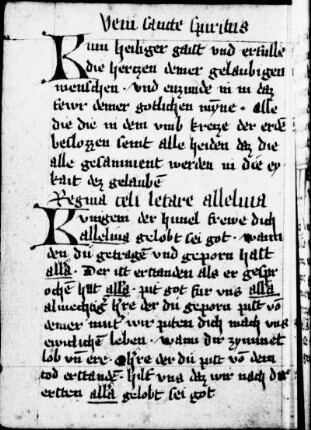 Veni sancte spiritus
Kum heiliger gaist vnd erfülle
die hertzen deiner gelaubigen
menschen · vnd enzunde in in daz
fewr deiner gotlichen mỹne · Alle
die die in dem vmb kreize der erde
beslozzen seint alle heiden daz die
alle gesamment werden in die ey
kait dez gelaubē
Regina celi letare alleluia
Kunigein der himel frewe dich
alleluia gelobt sei got · wann
den du getragē vnd geporn hast
alla̅ · Der ist erstanden als er gespr
ochē hat alla̅ · pit got fur vns alla̅
almechtig h̅re der du geporn pist võ
deiner mut wir piten dich mach vns
ewiclichē leben · wann dir zymmet
lob vn̄ ere · h̅re der du pist võ dem
tod erstandē · hilf vns daz wir nach dir
ersten alla̅ gelobt sei got